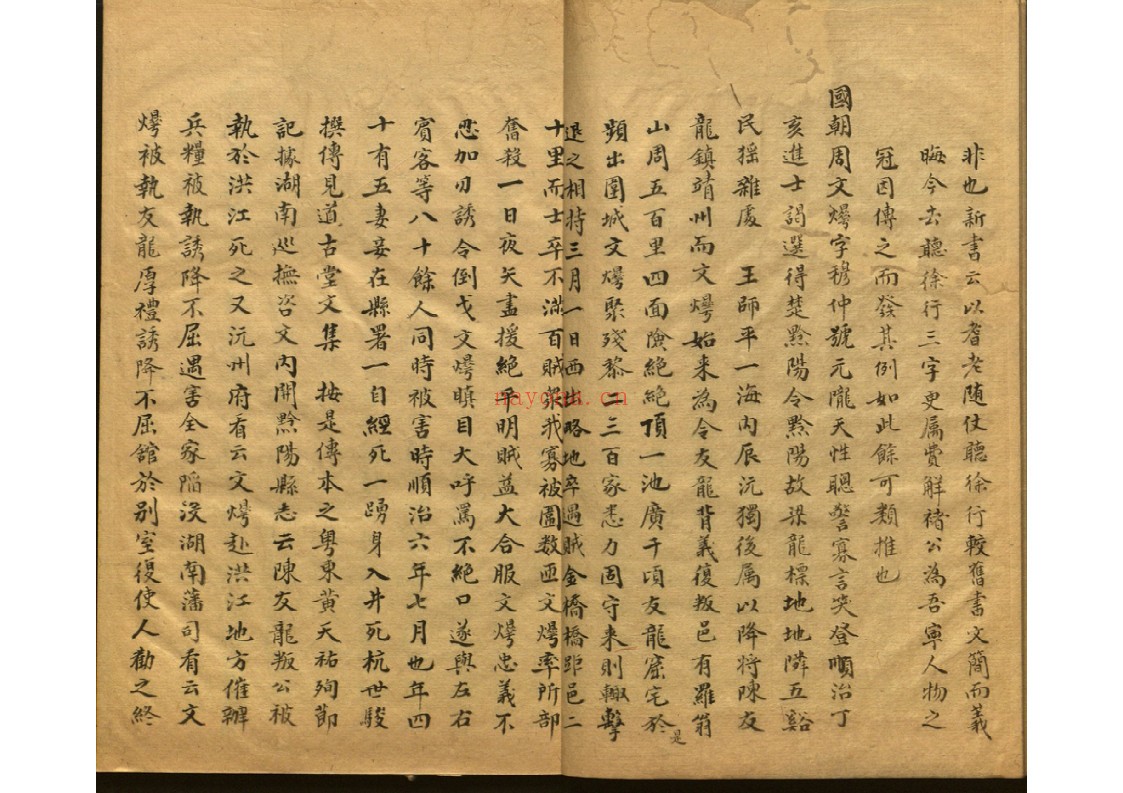 非也新書云以耆老随仗聽徐行較舊書文簡而義
晦今去聽徐行三字更屬費解禇公為吾寧人物之
冠因傳之而發其例如此餘可類推也
國朝周文㷸字穆仲號元隴天性聰警寡言笑登順治丁
亥進士謁選得楚黔陽令黔陽故梁龍標地地隣五谿
民猺雜處　王師平一海内辰沅獨後属以降將陳友
龍鎮靖州而文㷸始来為令友龍背義復叛邑有羅翁
山周五百里四面險絶絶頂一池廣千頃友龍窟宅於是
頻出圍城文㷸聚殘黎二三百家悉力固守来則輙擊
退之相持三月一日西出略地卒遇賊金橋橋距邑二
十里而士卒不滿百賊衆我寡被圍数匝文㷸率所部
奮殺一日夜矢盡援絶平明賊益大合服文㷸忠義不
忍加刃誘令倒戈文㷸瞋目大呼罵不絶口遂與左右
賓客等八十餘人同時被害時順治六年七月也年四
十有五妻妾在縣署一自經死一踴身入井死杭世駿
撰傳見道古堂文集　按是傳本之粤東黄天祐殉節
記據湖南巡撫咨文内開黔陽縣志云陳友龍叛公被
執於洪江死之又沅州府看云文㷸赴洪江地方催辦
兵糧被執誘降不屈遇害全家陷没湖南藩司看云文
㷸被執友龍厚禮誘降不屈舘於别室復使人勸之終